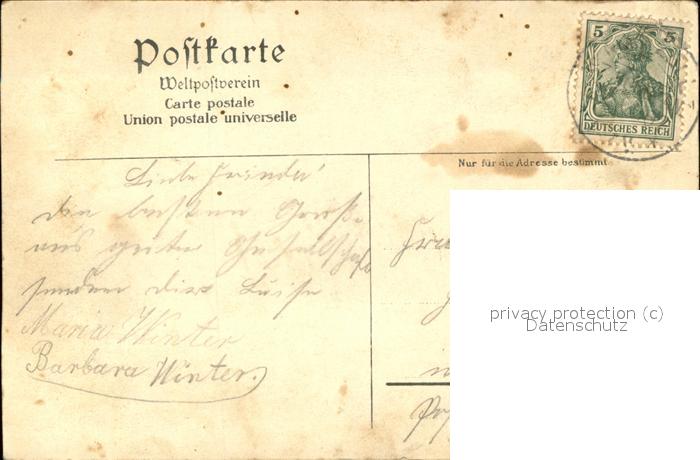 Postkarte
Weltpostverein
Carte postale
Union postale universelle
5 5
DEUTSCHES REICH
Nur für die Adresse bestimmt
Liebe Freunde!
die besten Grüße
aus guter Gesellschaft
senden dir Luise
Maria Winter
Barbara Winter.
privacy protection (c)
Datenschutz